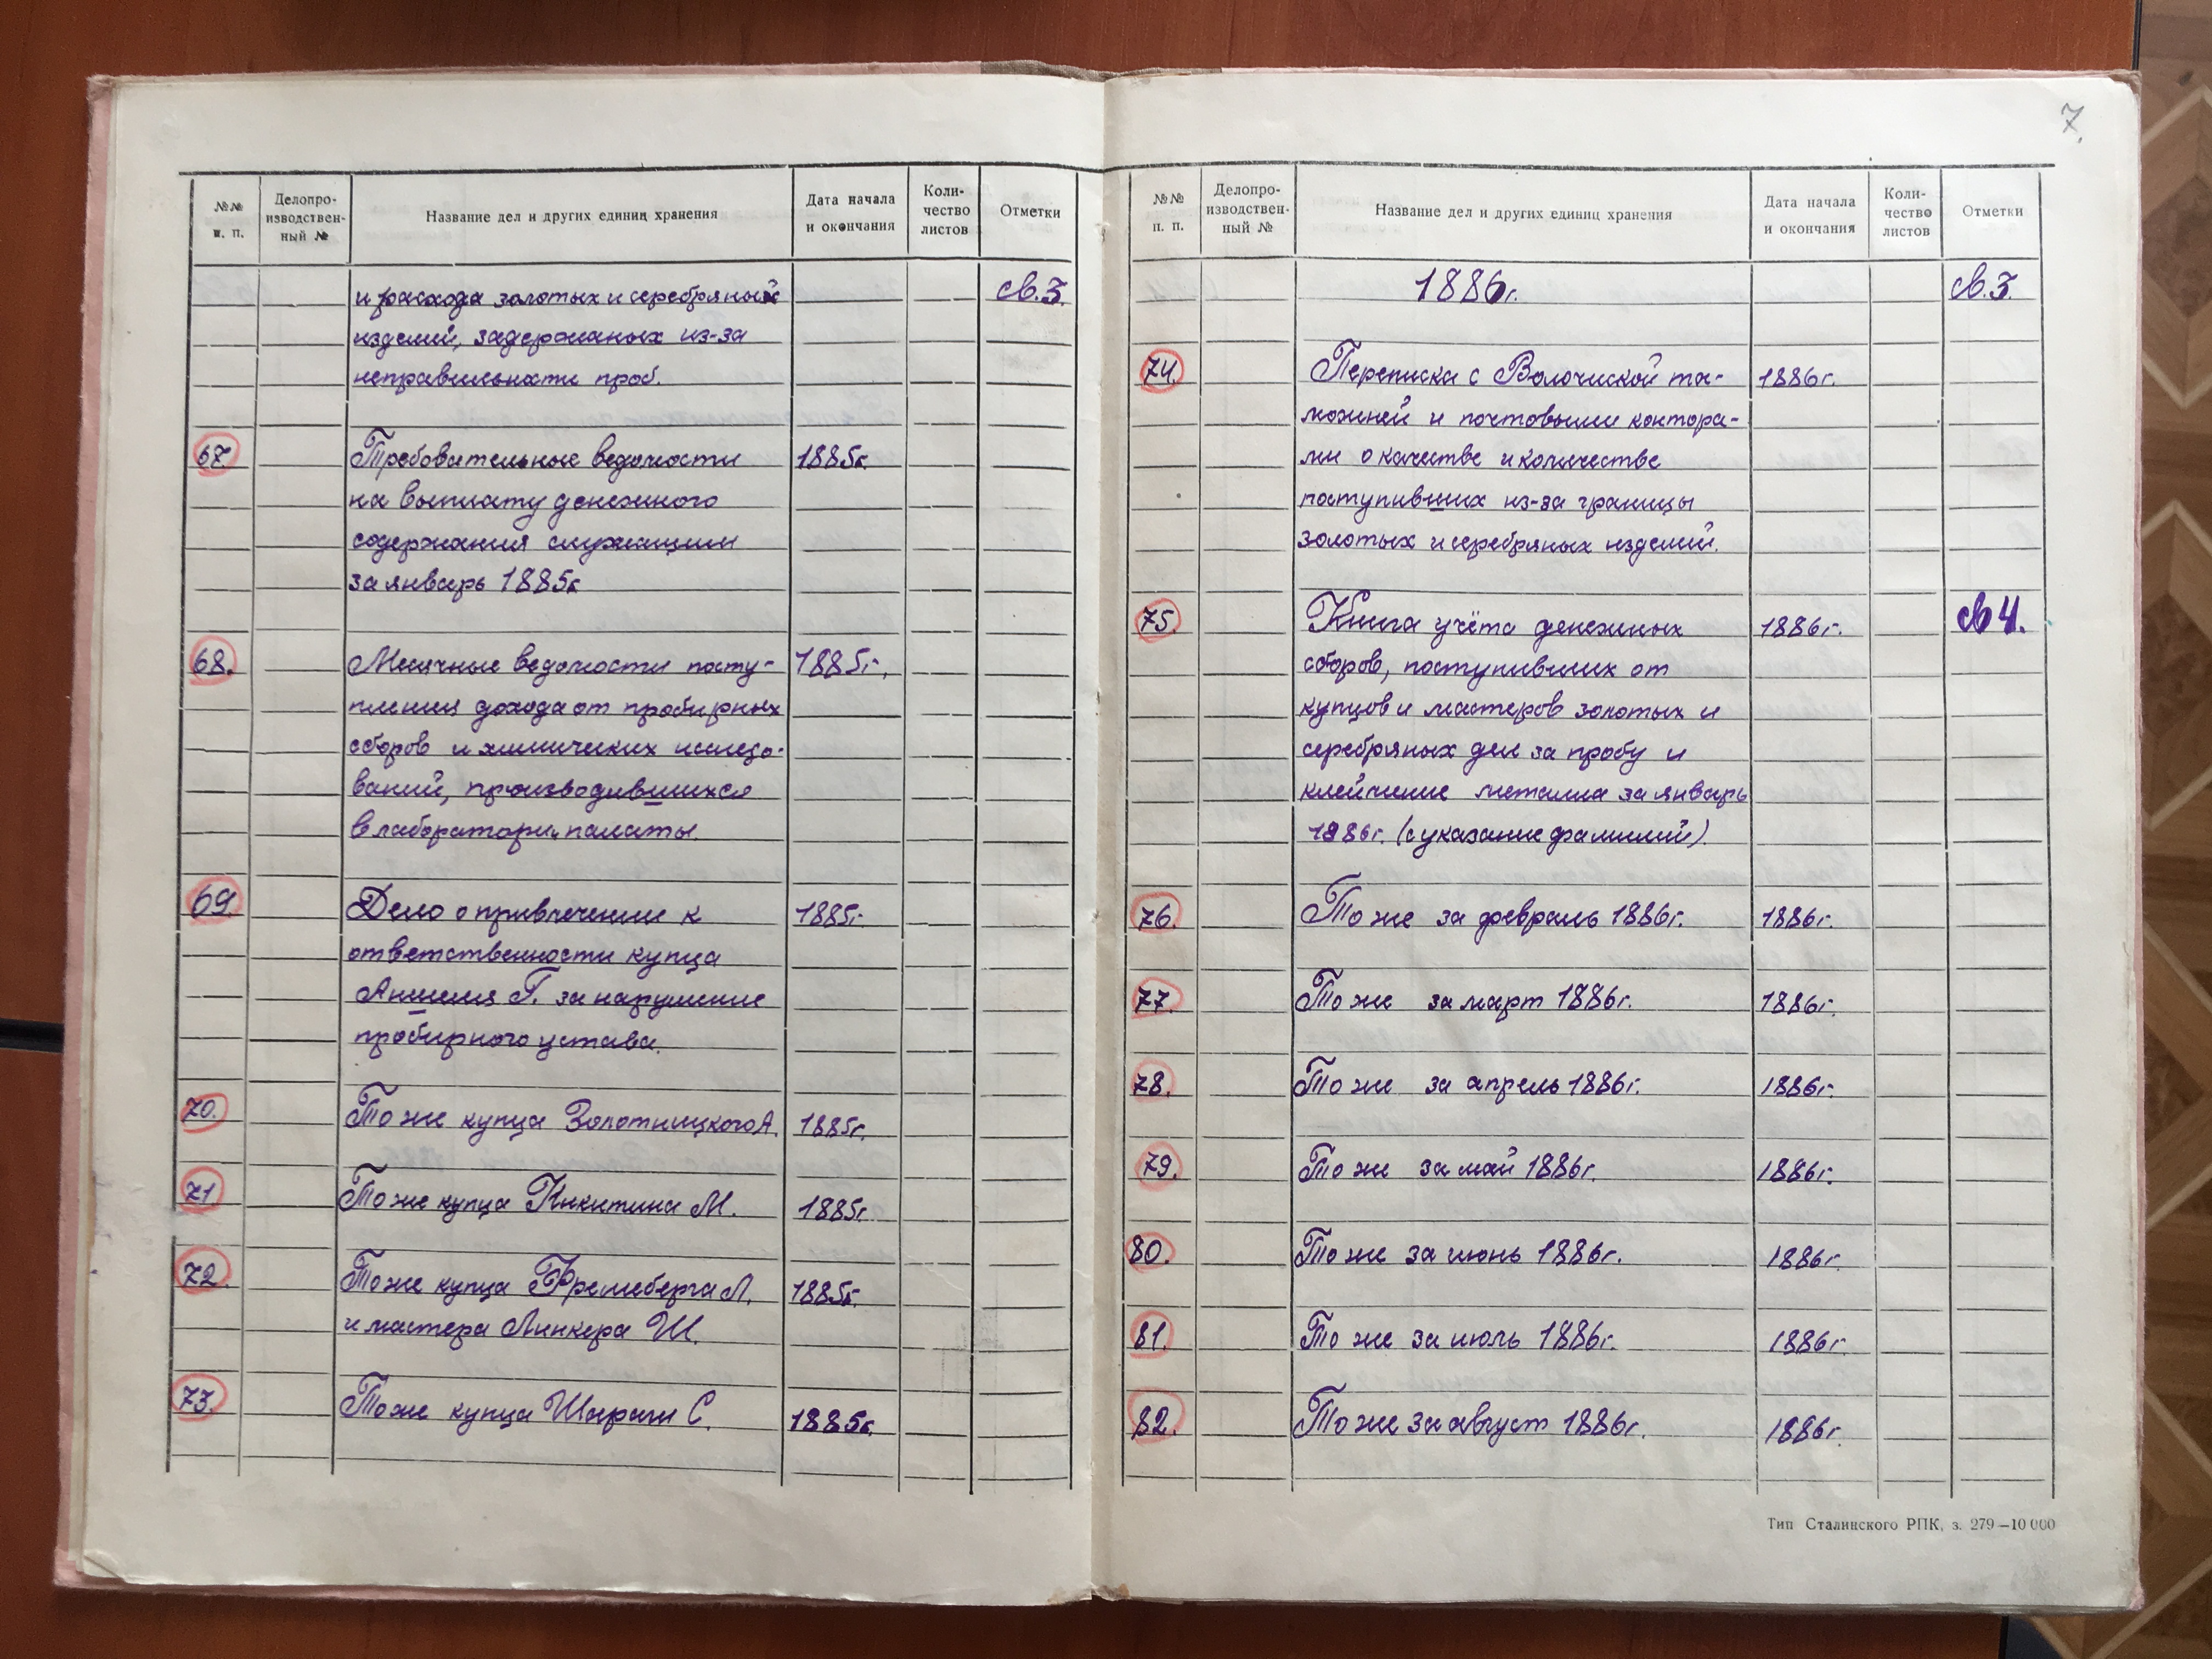 №№ п. п.
Делопро-
изводствен-
ный №
Название дел и других единиц хранения
Дата начала
и окончания
Коли-
чество
листов
Отметки
и расхода золотых и серебряных св.3.
изделий, задержаных из-за
неправильности проб.
67. Требовательные ведомости 1885г.
на выплату денежного
содержания служащим
за январь 1885г.
68. Месячные ведомости посту- 1885г.
пления дохода от пробирных
сборов и химических исследо-
ваний, производившихся
в лаборатории палаты.
69. Дело о привлечении к 1885г.
ответственности купца
Аншеля Г. за нарушение
пробирного устава.
70. То же купца Золотницкого А. 1885г.
71. То же купца Никитина М. 1885г.
72. То же купца Фремберга Л. 1885г.
и мастера Линкера Ш.
73. То же купца С. 1885г.
7.
№№ п. п.
Делопро-
изводствен-
ный №
Название дел и других единиц хранения
Дата начала
и окончания
Коли-
чество
листов
Отметки
1886г. св.3.
74. Переписка с Волочиской та- 1886г.
можней и почтовыми контора-
ми о качестве и количестве
поступивших из-за границы
золотых и серебряных изделий.
75. Книга учёта денежных 1886г. св 4.
сборов, поступивших от
купцов и мастеров золотых и
серебряных дел за пробу и
клеймение металла за январь
1886г. (с указание фамилий).
76. То же за февраль 1886г. 1886г.
77. То же за март 1886г. 1886г.
78. То же за апрель 1886г. 1886г.
79. То же за май 1886г. 1886г.
80. То же за июнь 1886г. 1886г.
81. То же за июль 1886г. 1886г.
82. То же за август 1886г. 1886г.
Тип Сталинского РПК, з. 279—10 000